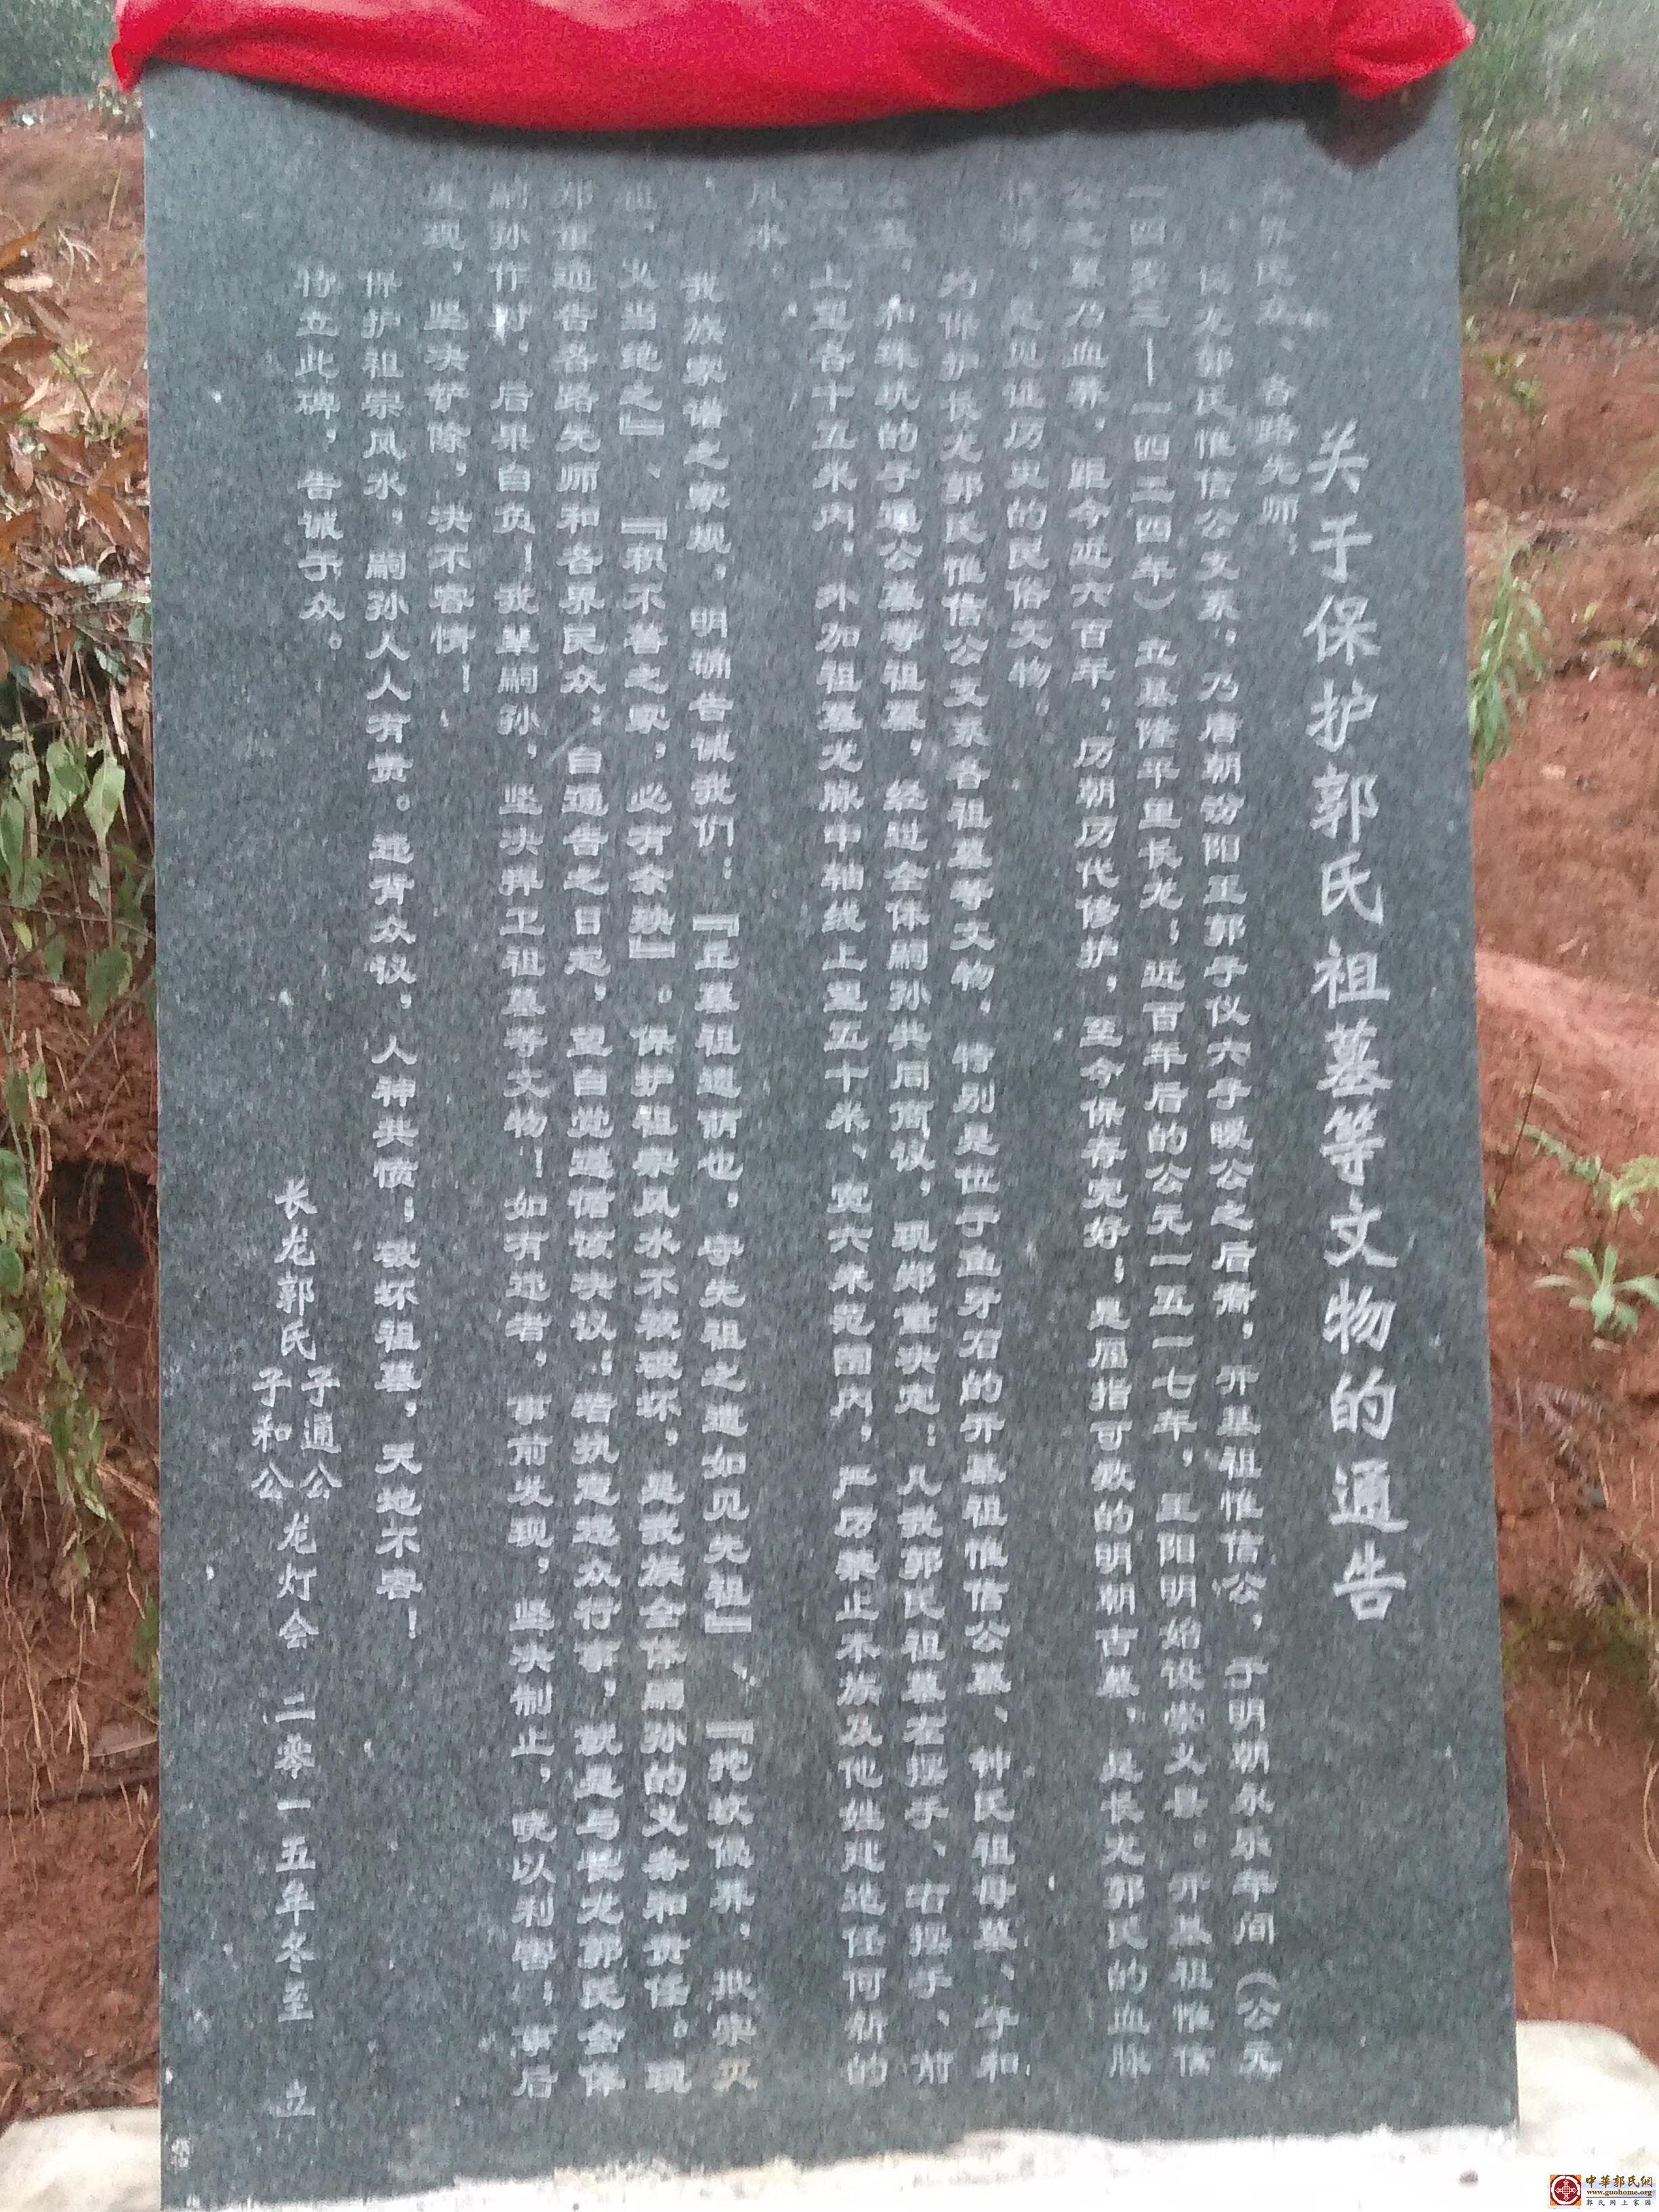 关于保护郭氏祖墓等文物的通告
各界民众、各路先师：
长龙郭氏惟信公支系，乃唐朝汾阳王郭子仪六子暧公之后裔，开基祖惟信公，于明朝永乐年间（公元
一四零三—一四二四年）立基隆平里长龙；近百年后的公元一五一七年，王阳明始设崇义县。开基祖惟信
公之墓乃血葬，距今近六百年，历朝历代修护，至今保存完好；是屈指可数的明朝古墓，是长龙郭氏的血脉
，是见证历史的民俗文物。
为保护长龙郭氏惟信公支系各祖墓等文物，特别是位于鱼牙石的开基祖惟信公墓、钟氏祖母墓、子和
公墓，和珠坑的子通公墓等祖墓，经过全体嗣孙共同商议，现郑重决定：凡我郭氏祖墓左摆手、右摆手、前
三、上至各十五米内，外加祖墓龙脉中轴线上至五十米、宽六米范围内，严厉禁止本族及他姓建造任何新的
风水。
我族家谱之家规，明确告诫我们：『丘墓祖道荫也，守先祖之道如见先祖』、『挖坟侵葬，欺宗灭
祖，义当绝之』、『积不善之家，必有余殃』。保护祖宗风水不被破坏，是我族全体嗣孙的义务和责任。现
郑重通告各路先师和各界民众：自通告之日起，望自觉遵循该决议；若执意违众行事，就是与长龙郭氏全体
嗣孙作对，后果自负！我辈嗣孙，坚决捍卫祖墓等文物！如有违者，事前发现，坚决制止，晓以利害；事后
发现，坚决铲除，决不容情！
保护祖宗风水，嗣孙人人有责。违背众议，人神共愤；破坏祖墓，天地不容！
特立此碑，告诫于众。
长龙郭氏 子通公 子和公 龙灯会 二零一五年冬至 立
中華郭氏網
www.guohome.org
郭氏网上家园